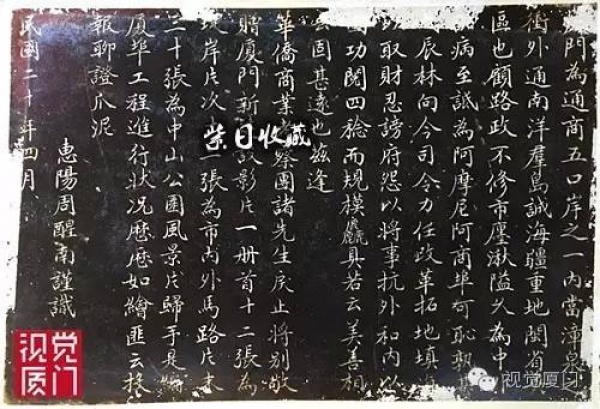 門為通商五口岸之一內當漳泉
衝外通南洋羣島誠海疆重地閩省
區也顧路政不修市廛湫隘久為中
病至詆為阿摩尼阿商埠可恥孰甚
辰林向今司令力任政革拓地填
以取財忍謗府怨以將事抗外和內以
功閱四稔而規模麤具若云美善相
云固甚遠也茲逢
華僑商業察團諸先生戾止將別敬
贈廈門新設影片一册首十二張為
岸片次一張為市內外馬路片末
二十張為中山公園風景片歸手是編
廈埠工程進行狀况歷歷如繪匪云投
報聊證爪泥
惠陽周醒南謹識
民國二十年四月
柴日收藏
视觉厦门
视觉厦门